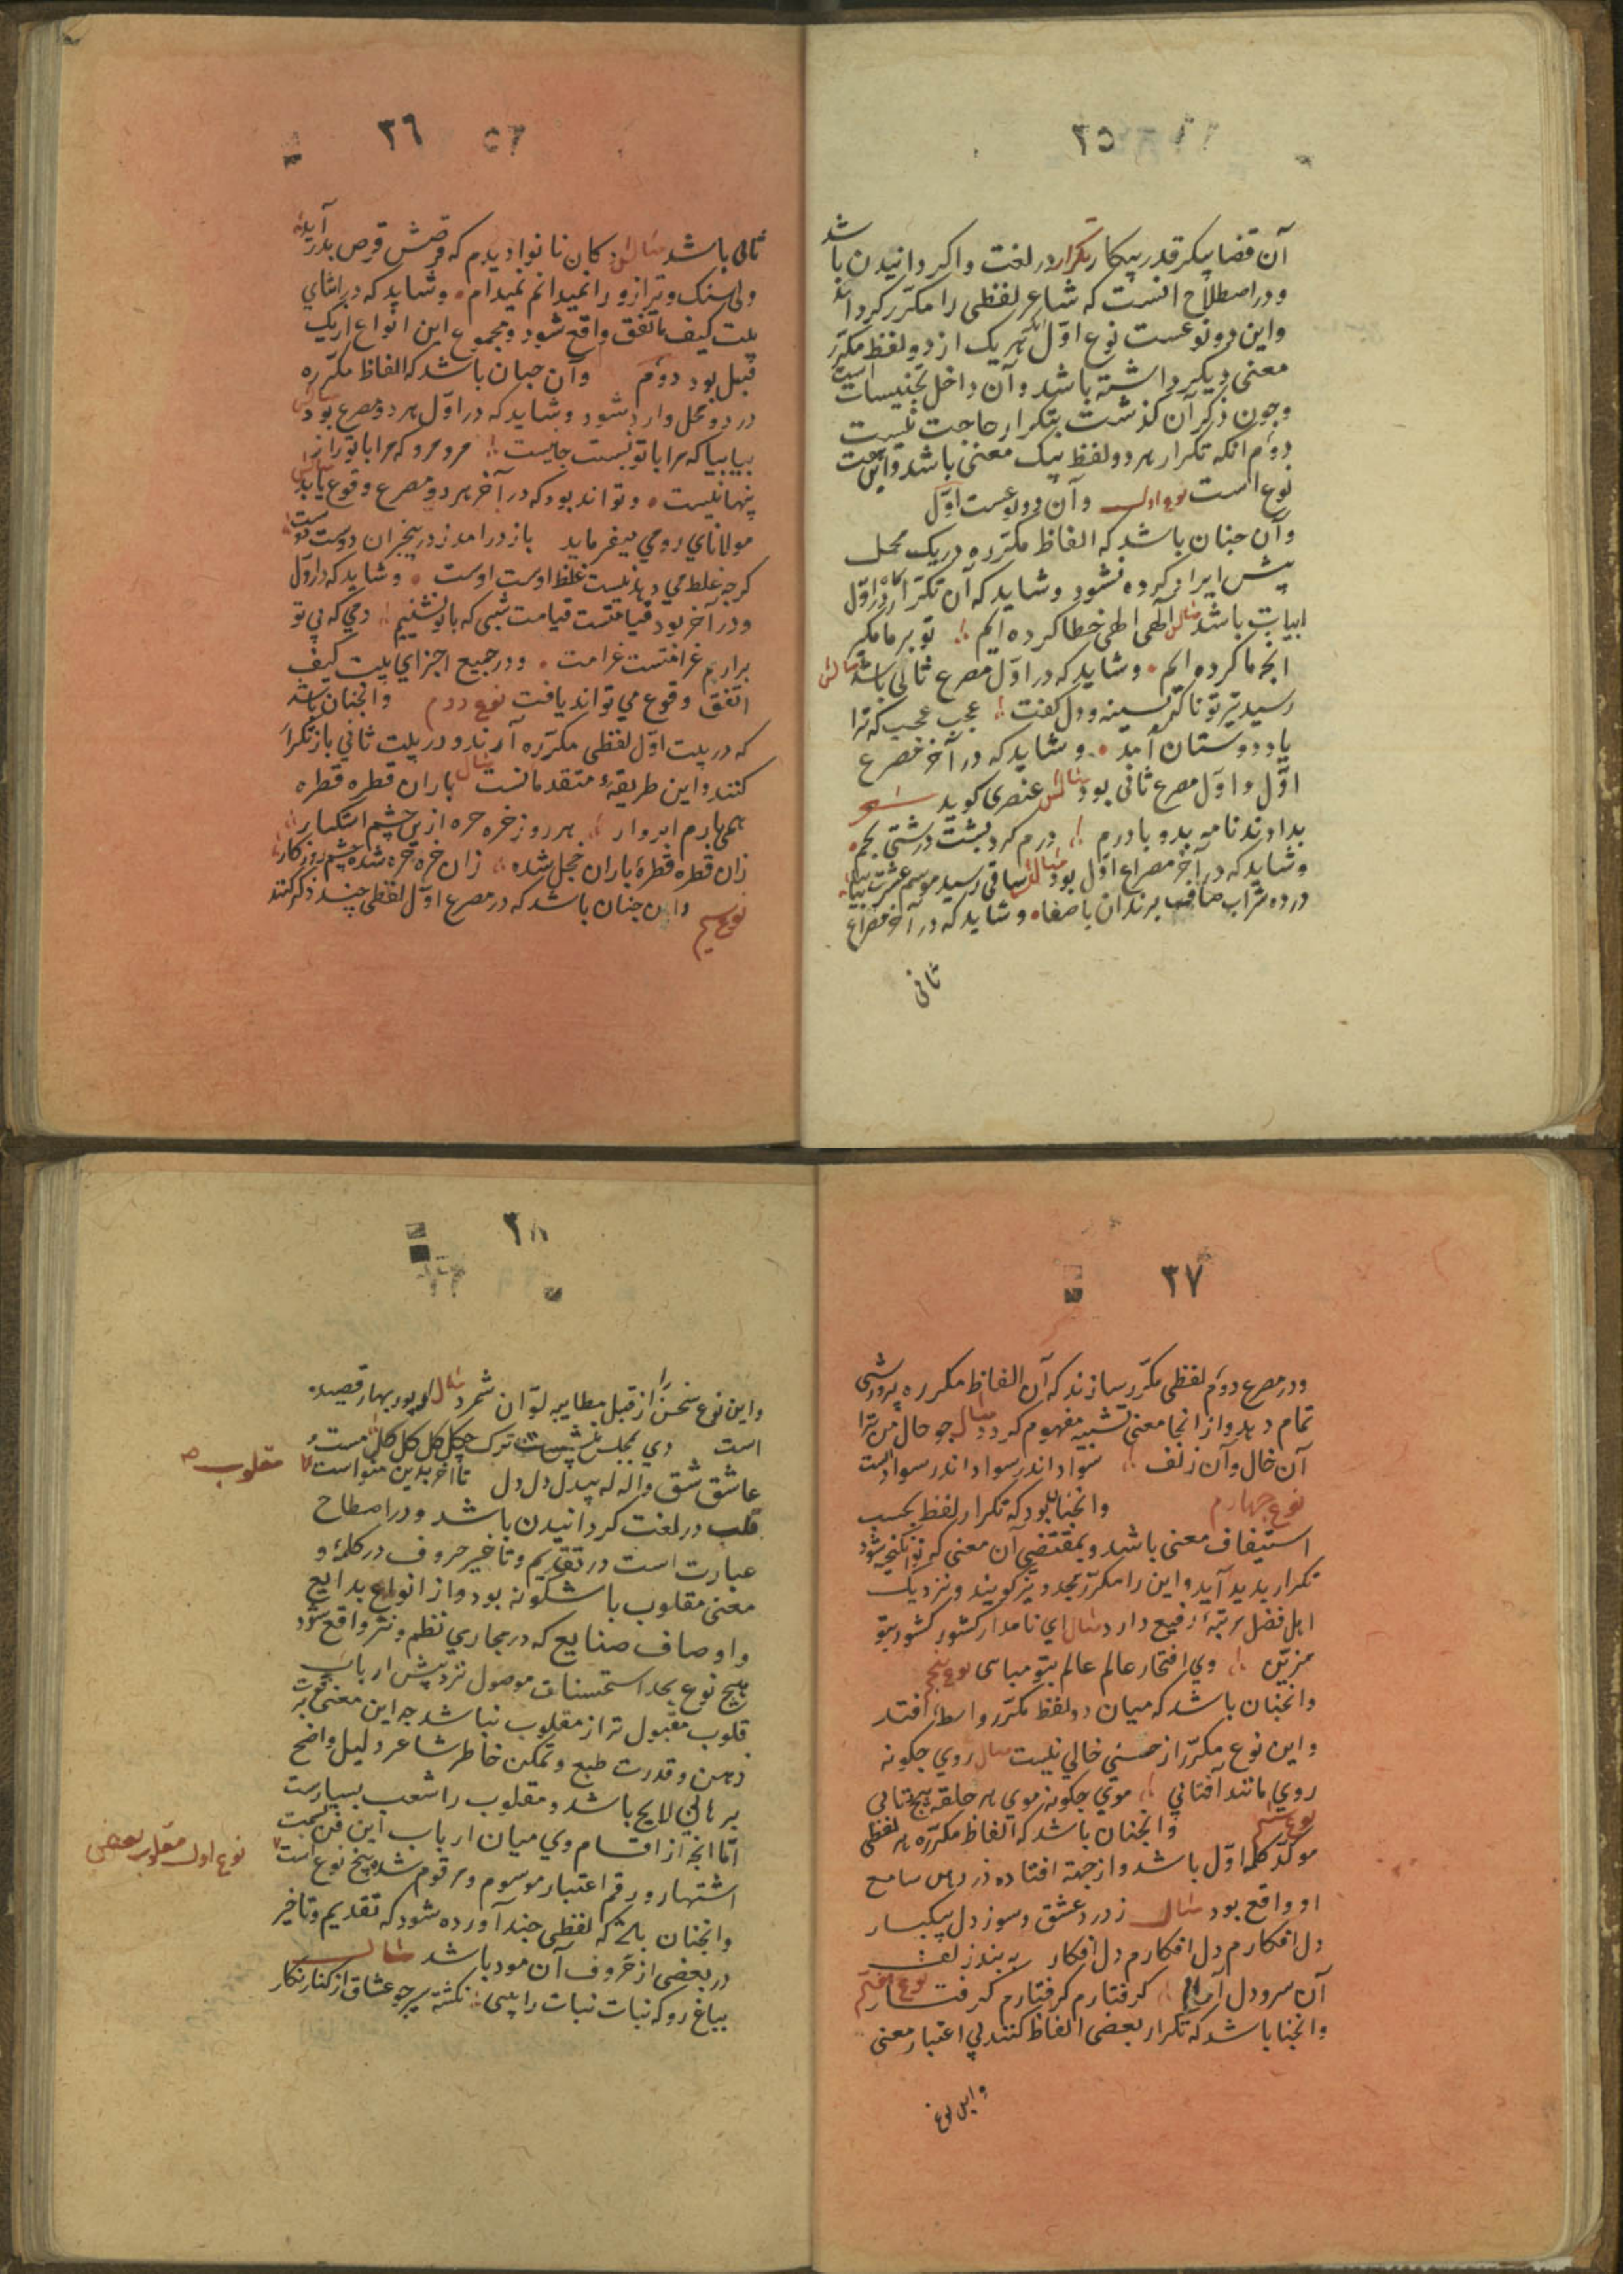 ٣٥
آن قضا پیکر قدر پیکار تکرار در لغت واکردانیدن باشد
و در اصطلاح انست که شاعر لفظی را مکرّر کرداند
و این دو نوعست نوع اوّل آنکه هریک از دو لفظ مکرّر
معنی دیکر داشته باشد و آن داخل تجنیسات است
و چون ذکر آن کذشت بتکرار حاجت نیست
دوّم انکه تکرار هر دو لفظ بیک معنی باشد و این
نوع است نوع اول و آن دو نوعست اوّل
و آن چنان باشد که الفاظ مکرّره در یک محل
بیش ایراد کرده نشود و شاید که آن تکرار در اوّل
ابیات باشد مثال الهی الهی خطا کرده ایم تو بر ما مکیر
انچه ما کرده ایم و شاید که در اوّل مصرع ثانی باشد مثالش
رسید تیر تو تا که بسینه و دل کفت عجب عجب که ترا
یاد دوستان آمد و شاید که در آخر مصرع
اوّل و اوّل مصرع ثانی بود مثالش عنصری کوید شعر
بدادند نامه بدو با درم درم کرد پشت درشتی بخم
و شاید که در آخر مصراع اوّل بود مثالش ساقی رسید موسم عشرت بیا بیا
در ده شراب صاف برندان با صفا و شاید که در آخر مصراع
ثانی
٣٦
ثانی باشد مثالش کان نانوا دیدم که قرصش قرص بدر آید
ولی سنک و ترازو را نمیدانم نمیدام و شاید که در اثنای
بیت کیف ما تفق واقع شود و مجموع این انواع از یک
قبل بود دوّم وآن چنان باشد که الفاظ مکرّره
در دو محل وارد شود و شاید که در اوّل هر دو مصرع بود مثالش
بیا بیا که مرا با تو نسبت جانیست مرو مرو که مرا با تو راز
پنهانیست و تواند بود که در آخر هر دو مصرع وقوع یابد مثالش
مولانای رومی میفرماید باز در امد ز در بیخبران دوست دوست
کرچه غلط می دهد نیست غلط اوست اوست و شاید که در اوّل
و در آخر بود قیامتست قیامت شبی که با تو نشینیم دمی که بی تو
براریم غرامتست غرامت و در جمیع اجزای بیت کیف
اتّفق وقوع می تواند یافت نوع دوم وانچنان باشد
که در بیت اوّل لفظی مکرّره آرند و در بیت ثانی باز تکرار
کنند و این طریقهٔ متقدمانست مثال باران قطره قطره
همی بارم ابروار هر روز خره خره ازین چشم اشکبار
زان قطره قطرهٔ باران خجل شده زان خره خره شده چشم روزکار
نوع سیم و این چنان باشد که در مصرع اوّل لفظی چند ذکر کنند
٣٧
و در مصرع دوم لفظی مکرّر سازند که آن الفاظ مکرره پرورشی
تمام دهد و از انجا معنی تشبیه مفهوم کردد مثال چو حال من ترا
آن خال و آن زلف سواد اندر سواد اندر سوادست
نوع چهارم وانچنان بود که تکرار لفظ بحسب
استیفاف معنی باشد و بمقتضی آن معنی که نو انکیخته شود
تکرار پدید آید و این را مکرّر مجدد نیز کویند و نزدیک
اهل فضل مرتبهٔ رفیع دارد مثال ای نامدار کشور کشور بتو
مزیّن وی افتخار عالم عالم بتو مباهی نوع پنجم
وانچنان باشد که میان دو لفظ مکرّر واسطه افتد
و این نوع مکرّر از حسنی خالی نیست مثال روی چکونه
روی مانند آفتابی موی چکونه موی هر حلقه پیچ تابی
نوع ششم وانچنان باشد که الفاظ مکرّره هر لفظی
موکّد کلمهٔ اوّل باشد و از جهة افتاده در دل سامع
او واقع بود مثال ز درد عشق و سوز دل بیکبار
دل افکارم دل افکارم دل افکار به بند زلف
آن سرو دل آرا کرفتارم کرفتارم کرفتار نوع هفتم
وانچنا باشد که تکرار بعضی الفاظ کنند بی اعتبار معنی
و این نوع
٣٨
و این نوع سخن را از قبل مطایبه توان شمرد مثال پور بهار قصیده
است دی بمجلس بنشست ترک چکل کل کل کل مست
عاشق شق واله له بیدل دل دل تا آخر بدین منواست مقلوب
قلب در لغت کردانیدن باشد و در اصطلاح
عبارت است در تقدیم و تاخیر حروف در کلمهٔ و
معنی مقلوب باشکونه بود و از انواع بدایع
و اوصاف صنایع که در مجاری نظم و نثر واقع شود
هیچ نوع بحد استحسنات موصول نزد پیش ارباب
قلوب مقبول تر از مقلوب نباشد چه این معنی قوت
ذهن و قدرت طبع و تمکین خاطر شاعر دلیل واضح
برهانی لایح باشد و مقلوب را شعب بسیارست
امّا انچه از اقسام وی میان ارباب این فن بسمت
اشتهار و رقم اعتبار موسوم و مرقوم شده پنج نوع است نوع اول مقلوب بعضی
وانچنان باشد که لفظی چند آورده شود که تقدیم و تاخیر
در بعضی از حروف آن مود باشد مثال
بباغ رو که نبات نبات را بینی نکشته هر چو عشاق از کنار نکار